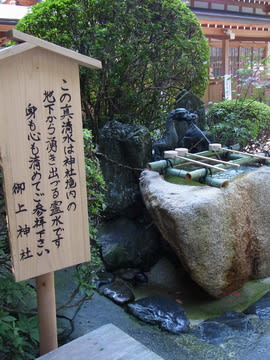 この真清水は神社境内の
地下から湧き出づる霊水です
身も心も清めてご参拝下さい
御上神社